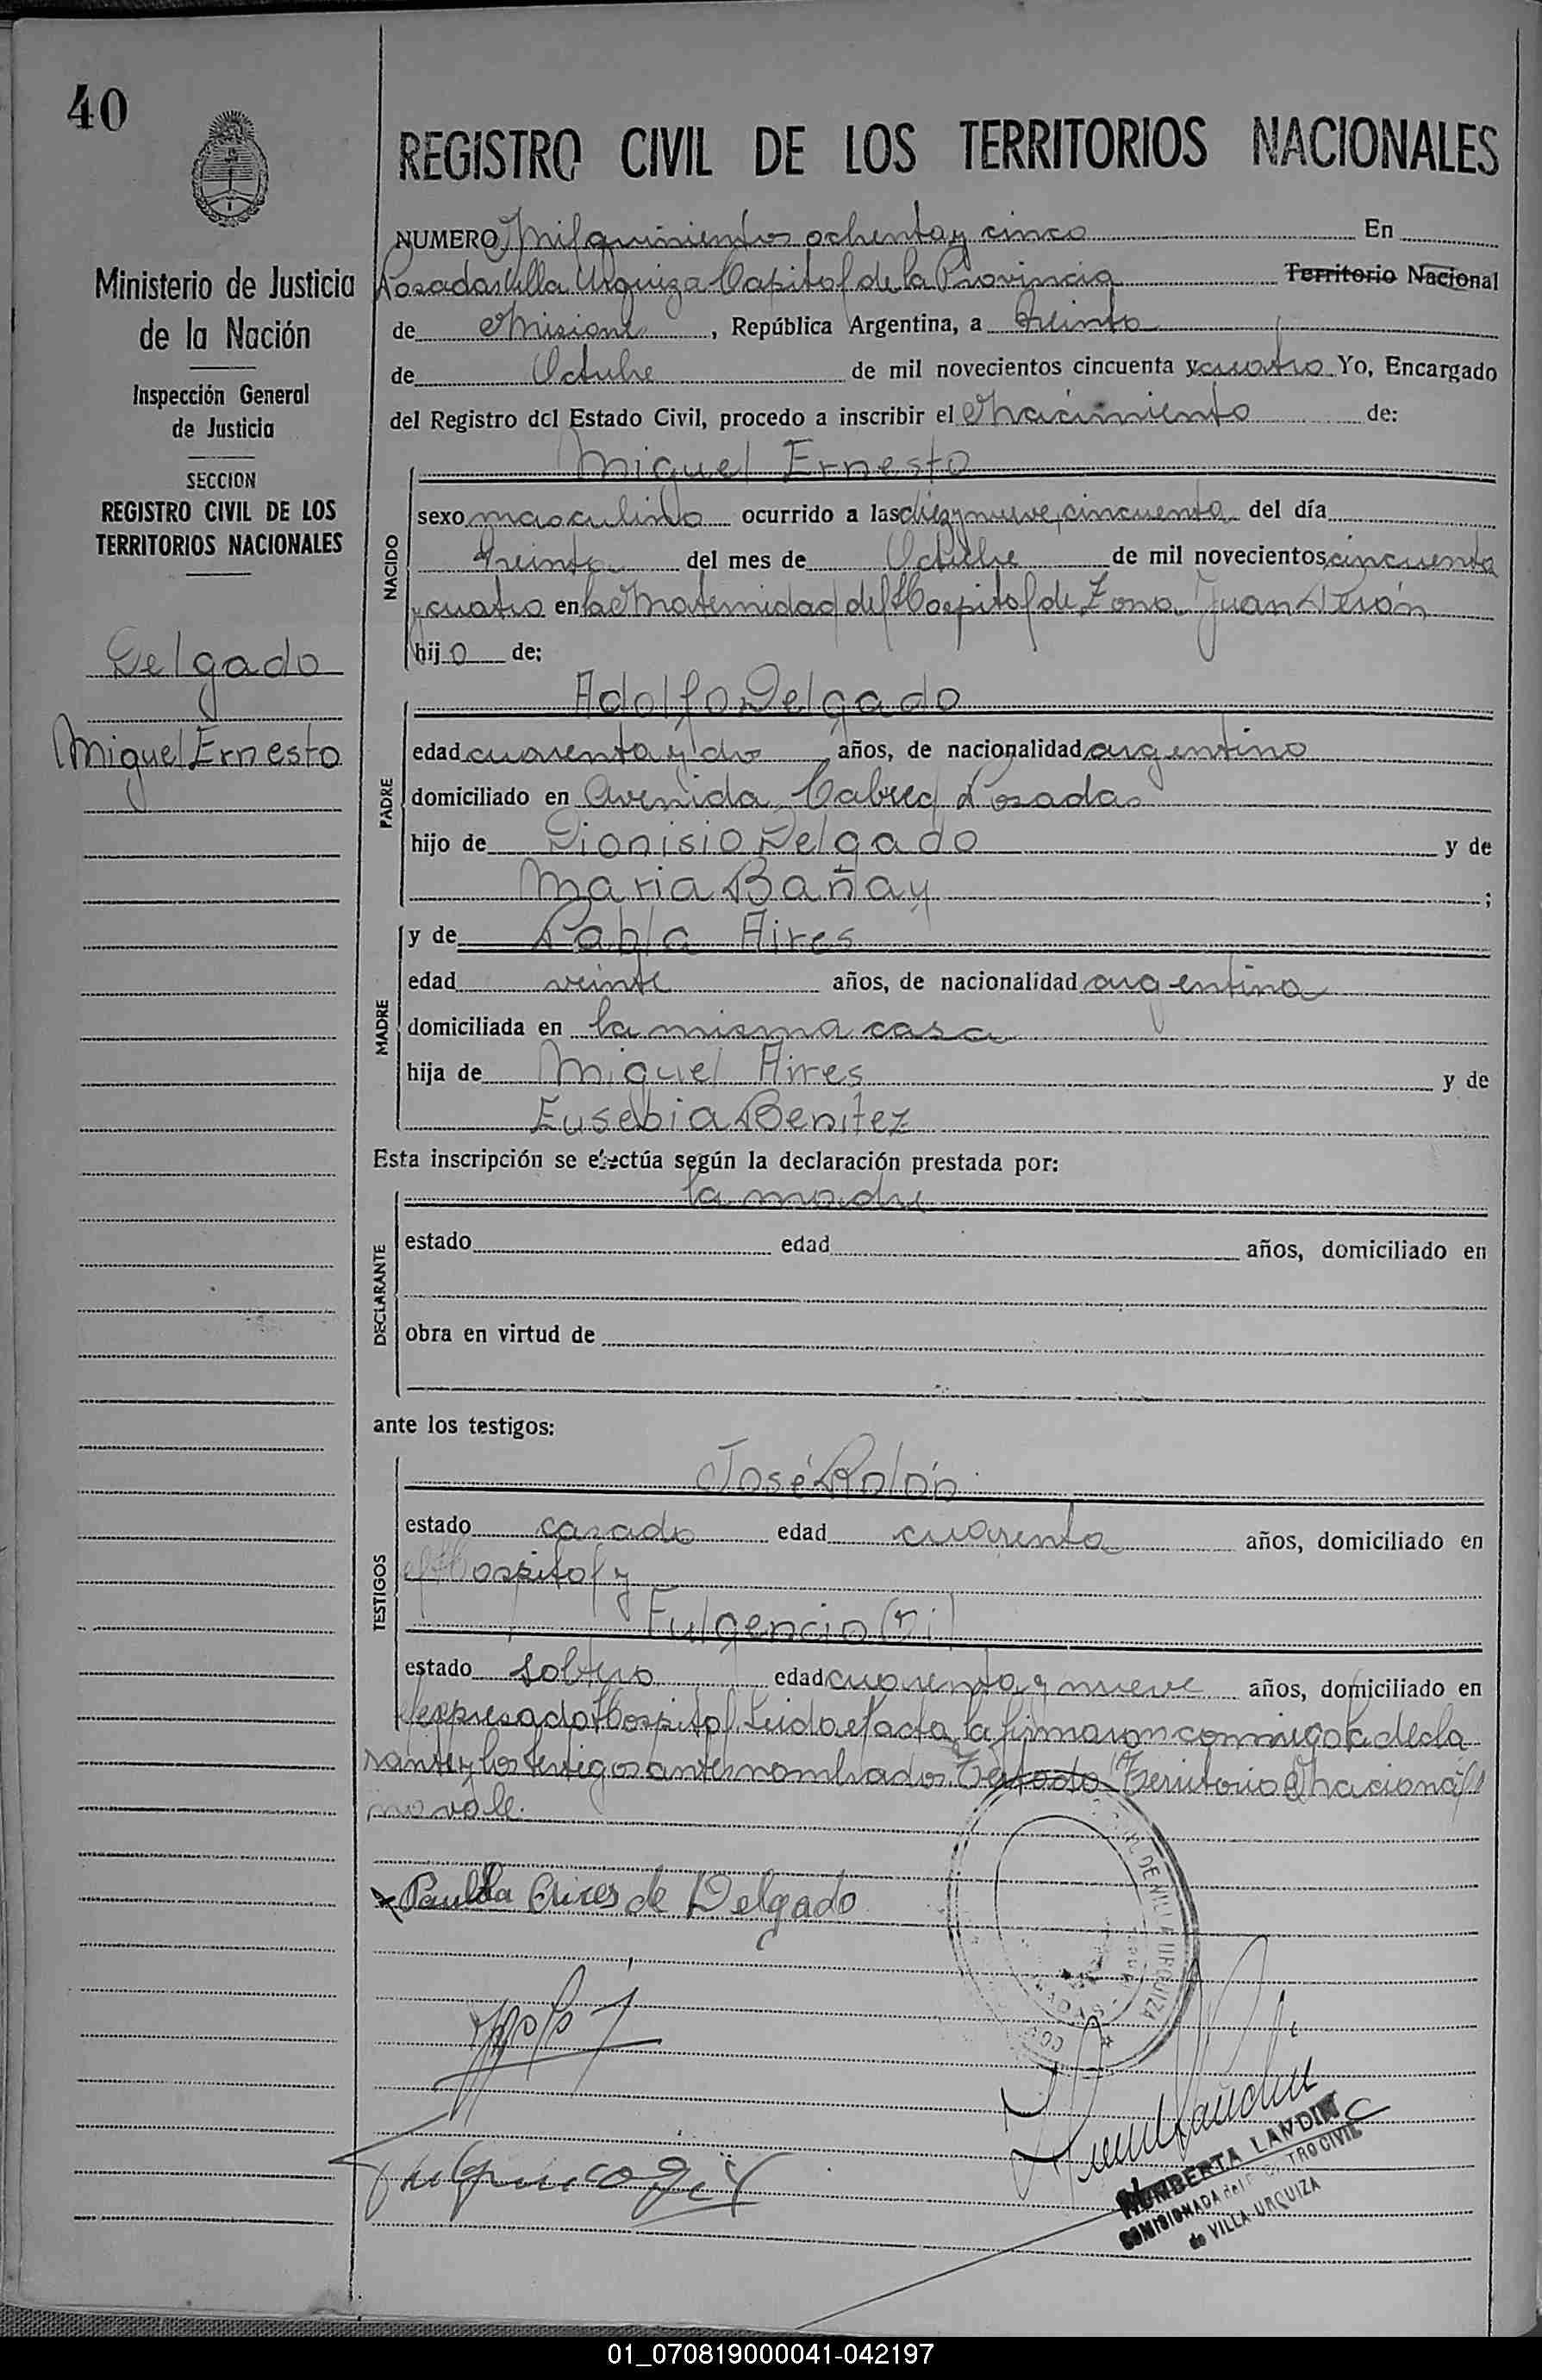 40
Ministerio de Justicia
de la Nación
Inspección General
de Justicia
SECCION
REGISTRO CIVIL DE LOS
TERRITORIOS NACIONALES
Delgado
Miguel Ernesto
REGISTRO CIVIL DE LOS TERRITORIOS NACIONALES
NUMERO Mil quinientos ochenta y cinco En
Posadas Villa Urquiza Capital de la Provincia Territorio Nacional
de Misiones, República Argentina, a treinta
de Octubre de mil novecientos cincuenta y cuatro Yo, Encargado
del Registro del Estado Civil, procedo a inscribir el Nacimiento de:
Miguel Ernesto
NACIDO
sexo masculino ocurrido a las diez y nueve, cincuenta del día
treinta del mes de Octubre de mil novecientos cincuenta
y cuatro en la Maternidad del Hospital de Zona Juan Perón
hijo de:
Adolfo Delgado
PADRE
edad cuarenta y dos años, de nacionalidad argentino
domiciliado en Avenida Cabred Posadas
hijo de Dionisio Delgado y de
Maria Bañay ;
y de Pabla Aires
MADRE
edad veinte años, de nacionalidad argentina
domiciliada en la misma casa
hija de Miguel Aires y de
Eusebia Benitez
Esta inscripción se efectúa según la declaración prestada por:
la madre
DECLARANTE
estado edad años, domiciliado en
obra en virtud de
ante los testigos:
José Rolón
TESTIGOS
estado casado edad cuarenta años, domiciliado en
el Hospital y
Fulgencio Gil
estado soltero edad cuarenta y nueve años, domiciliado en
el expresado Hospital. Leida el acta, la firmaron conmigo la decla
rante y los testigos antes nombrados. Testado Territorio Nacional
no vale.
Paubla Aires de Delgado
DE VILLA URQUIZA
Fulgencio Gil
NUMBERTA LANDIN
COMISIONADA del REGISTRO CIVIL
de VILLA URQUIZA
01_070819000041-042197